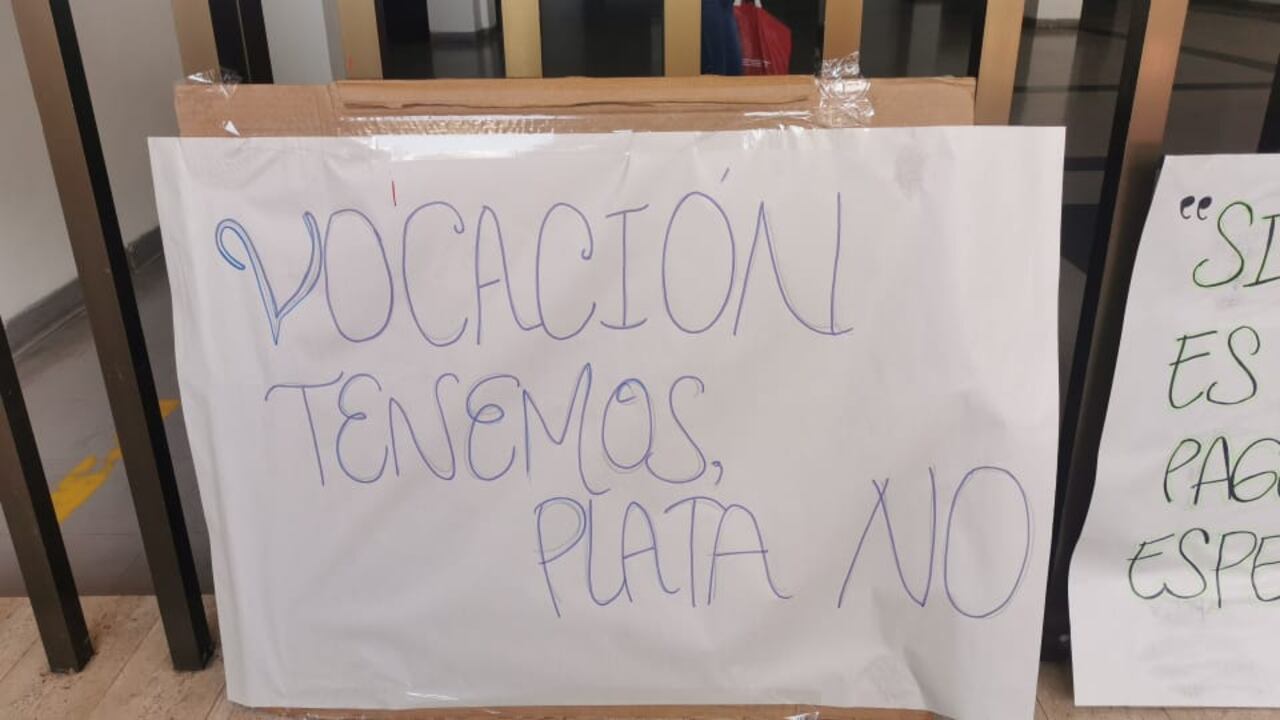 VOCACIÓN
TENEMOS,
PLATA NO
"SI
ES
PAG
ESPE